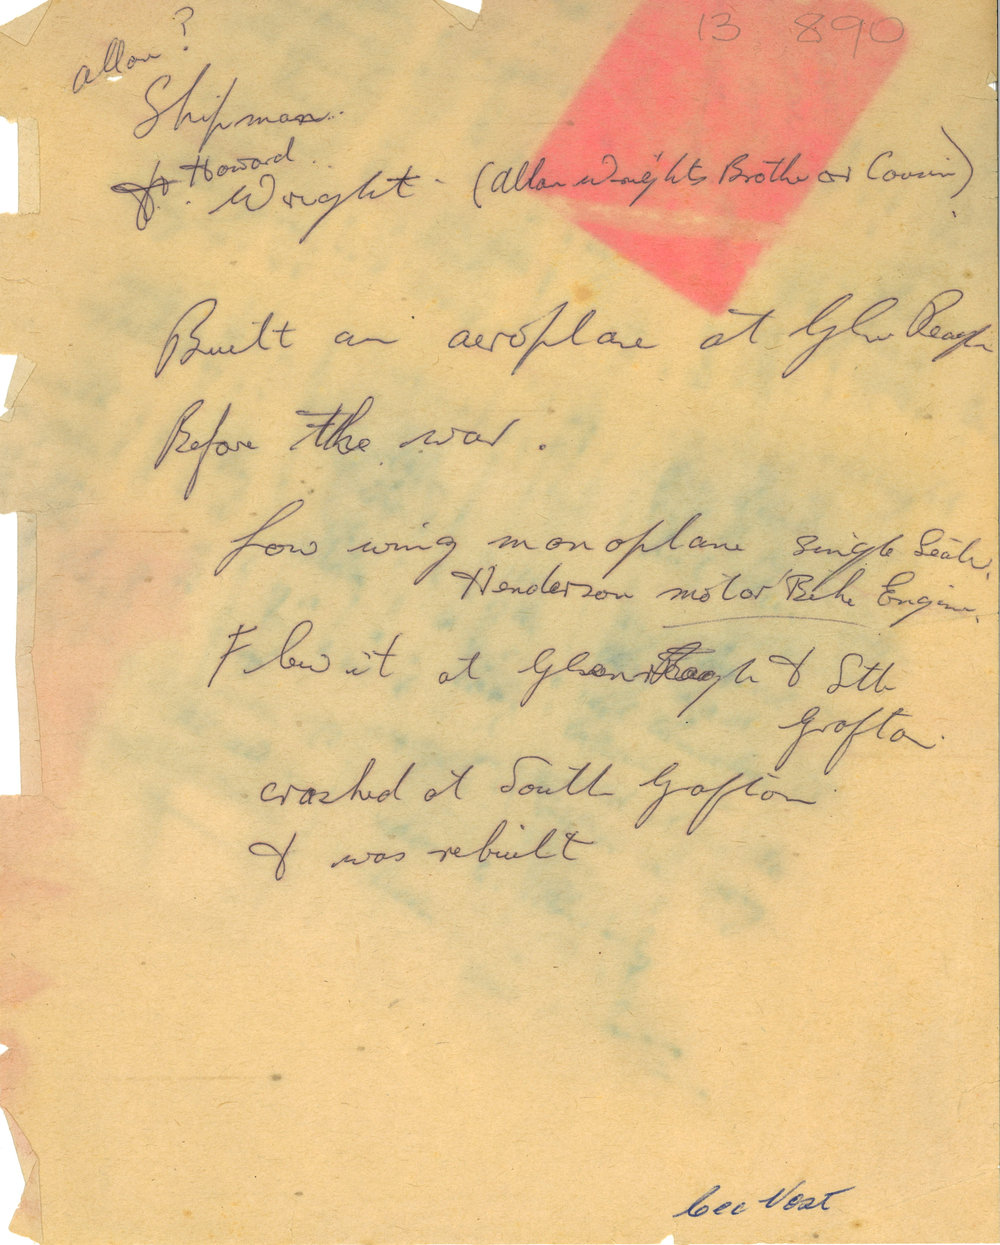 13 890
Allan?
Shipman.
Howard.
Wright. (Allan Wrights Brothe or Cousin)
Built an aeroplane at Glen Reagh
Before the war.
Low wing monoplane single Seater.
Henderson motor Bike Engine.
Flew it at Glenreagh & Sth
Grafton.
crashed at South Grafton
& was rebuilt